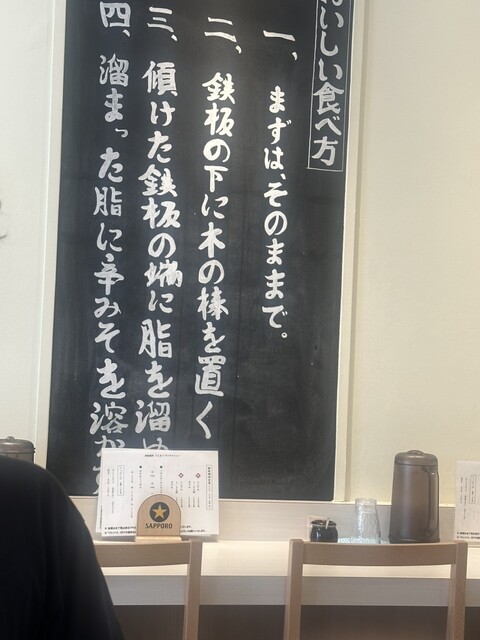 おいしい食べ方
一、まずは、そのままで。
二、鉄板の下に木の棒を置く
三、傾けた鉄板の端に脂を溜め
四、溜まった脂に辛みそを溶かす
SAPPORO